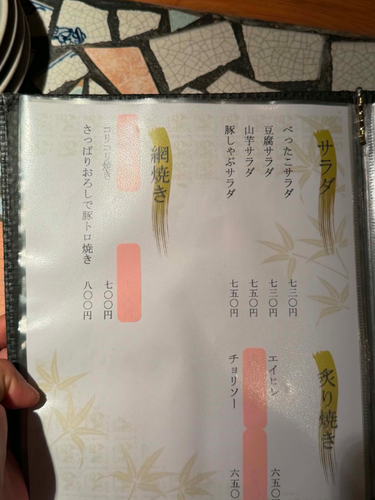 サラダ
ぺったこサラダ 七三〇円
豆腐サラダ 七三〇円
山芋サラダ 七五〇円
豚しゃぶサラダ 七五〇円
炙り焼き
エイヒレ 六五〇
チョリソー 六五〇
網焼き
コリコリ焼き 七〇〇円
さっぱりおろしで豚トロ焼き 八〇〇円